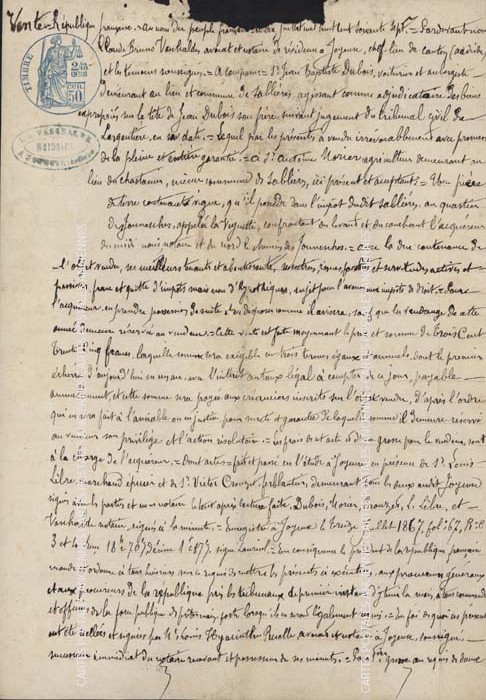 Vente = République française = au nom du peuple français = sept = Pardevant nous
Bruno Vaschalde avocat et notaire à la résidence à Joyeuse, chef-lieu de canton (Ardèche)
et les témoins soussignés = A comparu = Sr. Jean Baptiste Dubois, voiturier et aubergiste
TIMBRE
50
demeurant au lieu et commune de Sablières, agissant comme adjudicataire des biens
expropriés sur la tête de Jean Dubois son père, suivant jugement du tribunal civil de
Largentière, en sa date = lequel par les présentes a vendu irrévocablement avec promesse
de la pleine et entière garantie = à Sr. Antoine agriculteur demeurant au
lieu du chastanier, même commune de Sablières, ici présent et acceptant = Une pièce
de terre qu'il possède dans l'impôt dudit Sablières, au quartier
de appelée la Vignette, confrontant du levant et du couchant l'acquéreur
du midi et du nord le chemin des = avec la due contenance de
l'objet vendu, ses meilleurs tenants et aboutissants, entrées, issues, facultés et servitudes actives et
passives, franc et quitte d'impôts mais non d'hypothèques, sujet pour l'avenir aux impôts de droit = Pour
l'acquéreur, en prendre possession de suite et en disposer comme il avisera, sauf que la vendange de cette
année demeure réservée au vendeur = Cette vente est faite moyennant le prix et somme de Trois Cent
Trente Cinq francs, laquelle somme sera exigible en trois termes égaux et annuels, dont le premier
écherra d'aujourd'hui en un an, avec l'intérêt au taux légal à compter de ce jour, payable
annuellement, et cette somme sera payée aux créanciers inscrits sur l'objet vendu, d'après l'ordre
qui en sera fait à l'amiable ou en justice, pour sureté et garantie de laquelle somme il demeure réservé
au vendeur son privilège et l'action résolutoire = les frais du acte et d'une grosse pour le vendeur, sont
à la charge de l'acquéreur = Dont acte = fait et passé en l'étude à Joyeuse en présence de Sr. Louis
Libre, marchand épicier et de Sr. Victor Crouzet ferblantier, demeurant tous les deux audit Joyeuse
signés avec les parties et nous notaire le tout après lecture faite, Dubois, Crouzet, L. Libre, et
Vaschalde notaire, signés à la minute = Enregistré à Joyeuse le treize juillet 1867, fol. 67, R. C.
3 et signé = En conséquence le président de la république française
mande et ordonne à tous huissiers sur ce requis de mettre les présentes à exécution, aux procureurs généraux
et aux procureurs de la république près les tribunaux de première instance d'y tenir la main, à tous commandants
et officiers de la force publique de prêter main forte lorsqu'ils en seront légalement requis = En foi de quoi ces présentes
ont été scellées et signées par Louis Hyacinthe avocat et notaire à Joyeuse, soussigné,
successeur immédiat du notaire recevant et possesseur de ses minutes = grosse au requis de dame